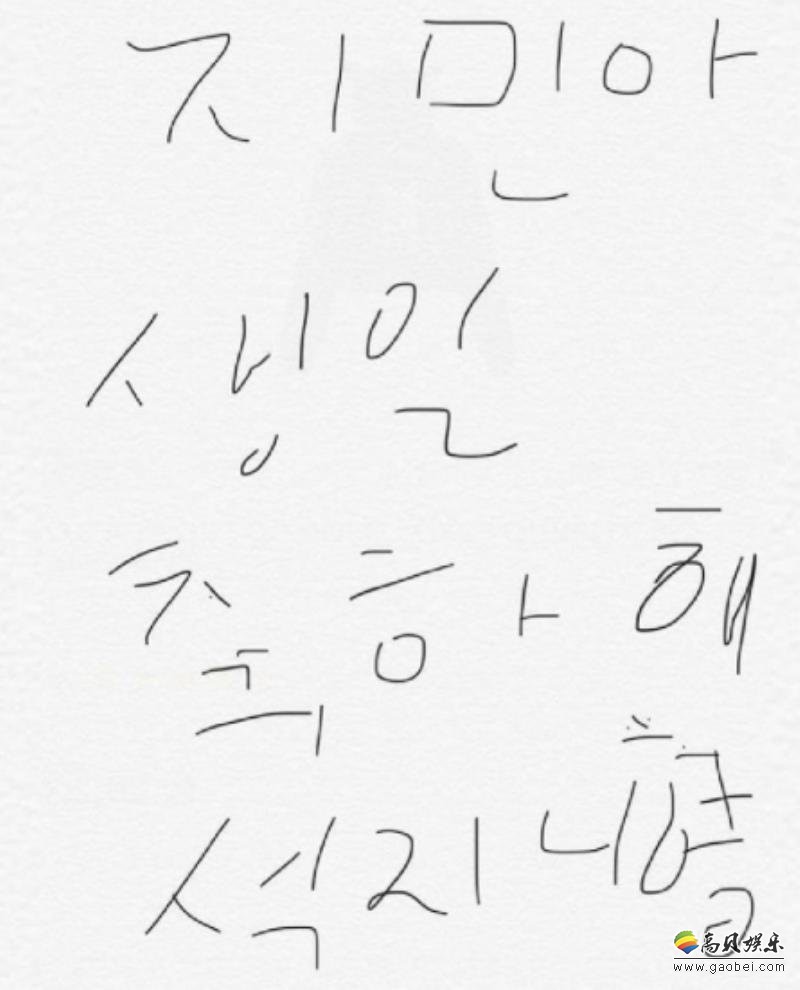 지민아
생일
축하해
석지니형
高贝娱乐
www.gaobei.com